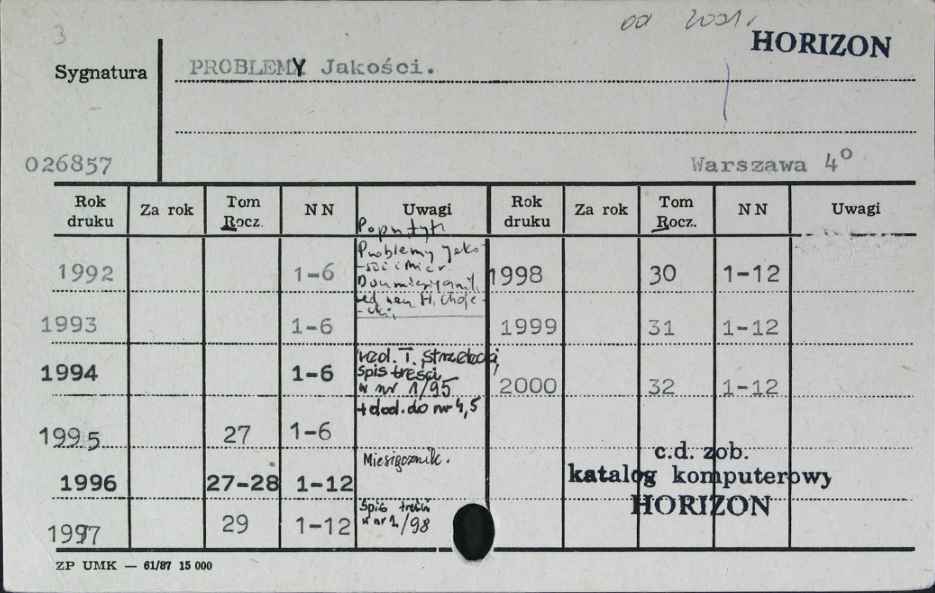 3
od 2001r.
HORIZON
Sygnatura
PROBLEMY Jakości.
026857
Warszawa 4°
Rok druku Za rok Tom Rocz. NN Uwagi Rok druku Za rok Tom Rocz. NN Uwagi
Problemy jako-
1992 1-6 1998 30 1-12
Dwumiesięcznik.
1993 1-6 1999 31 1-12
red. T. Strzelecki,
1994 1-6 spis treści
w nr 1/95 2000 32 1-12
+ dod. do nr 4,5
1995 27 1-6
c.d. zob.
Miesięcznik.
1996 27-28 1-12 katalog komputerowy
HORIZON
1997 29 1-12 Spis treści
w nr 1/98
ZP UMK — 61/87 15 000